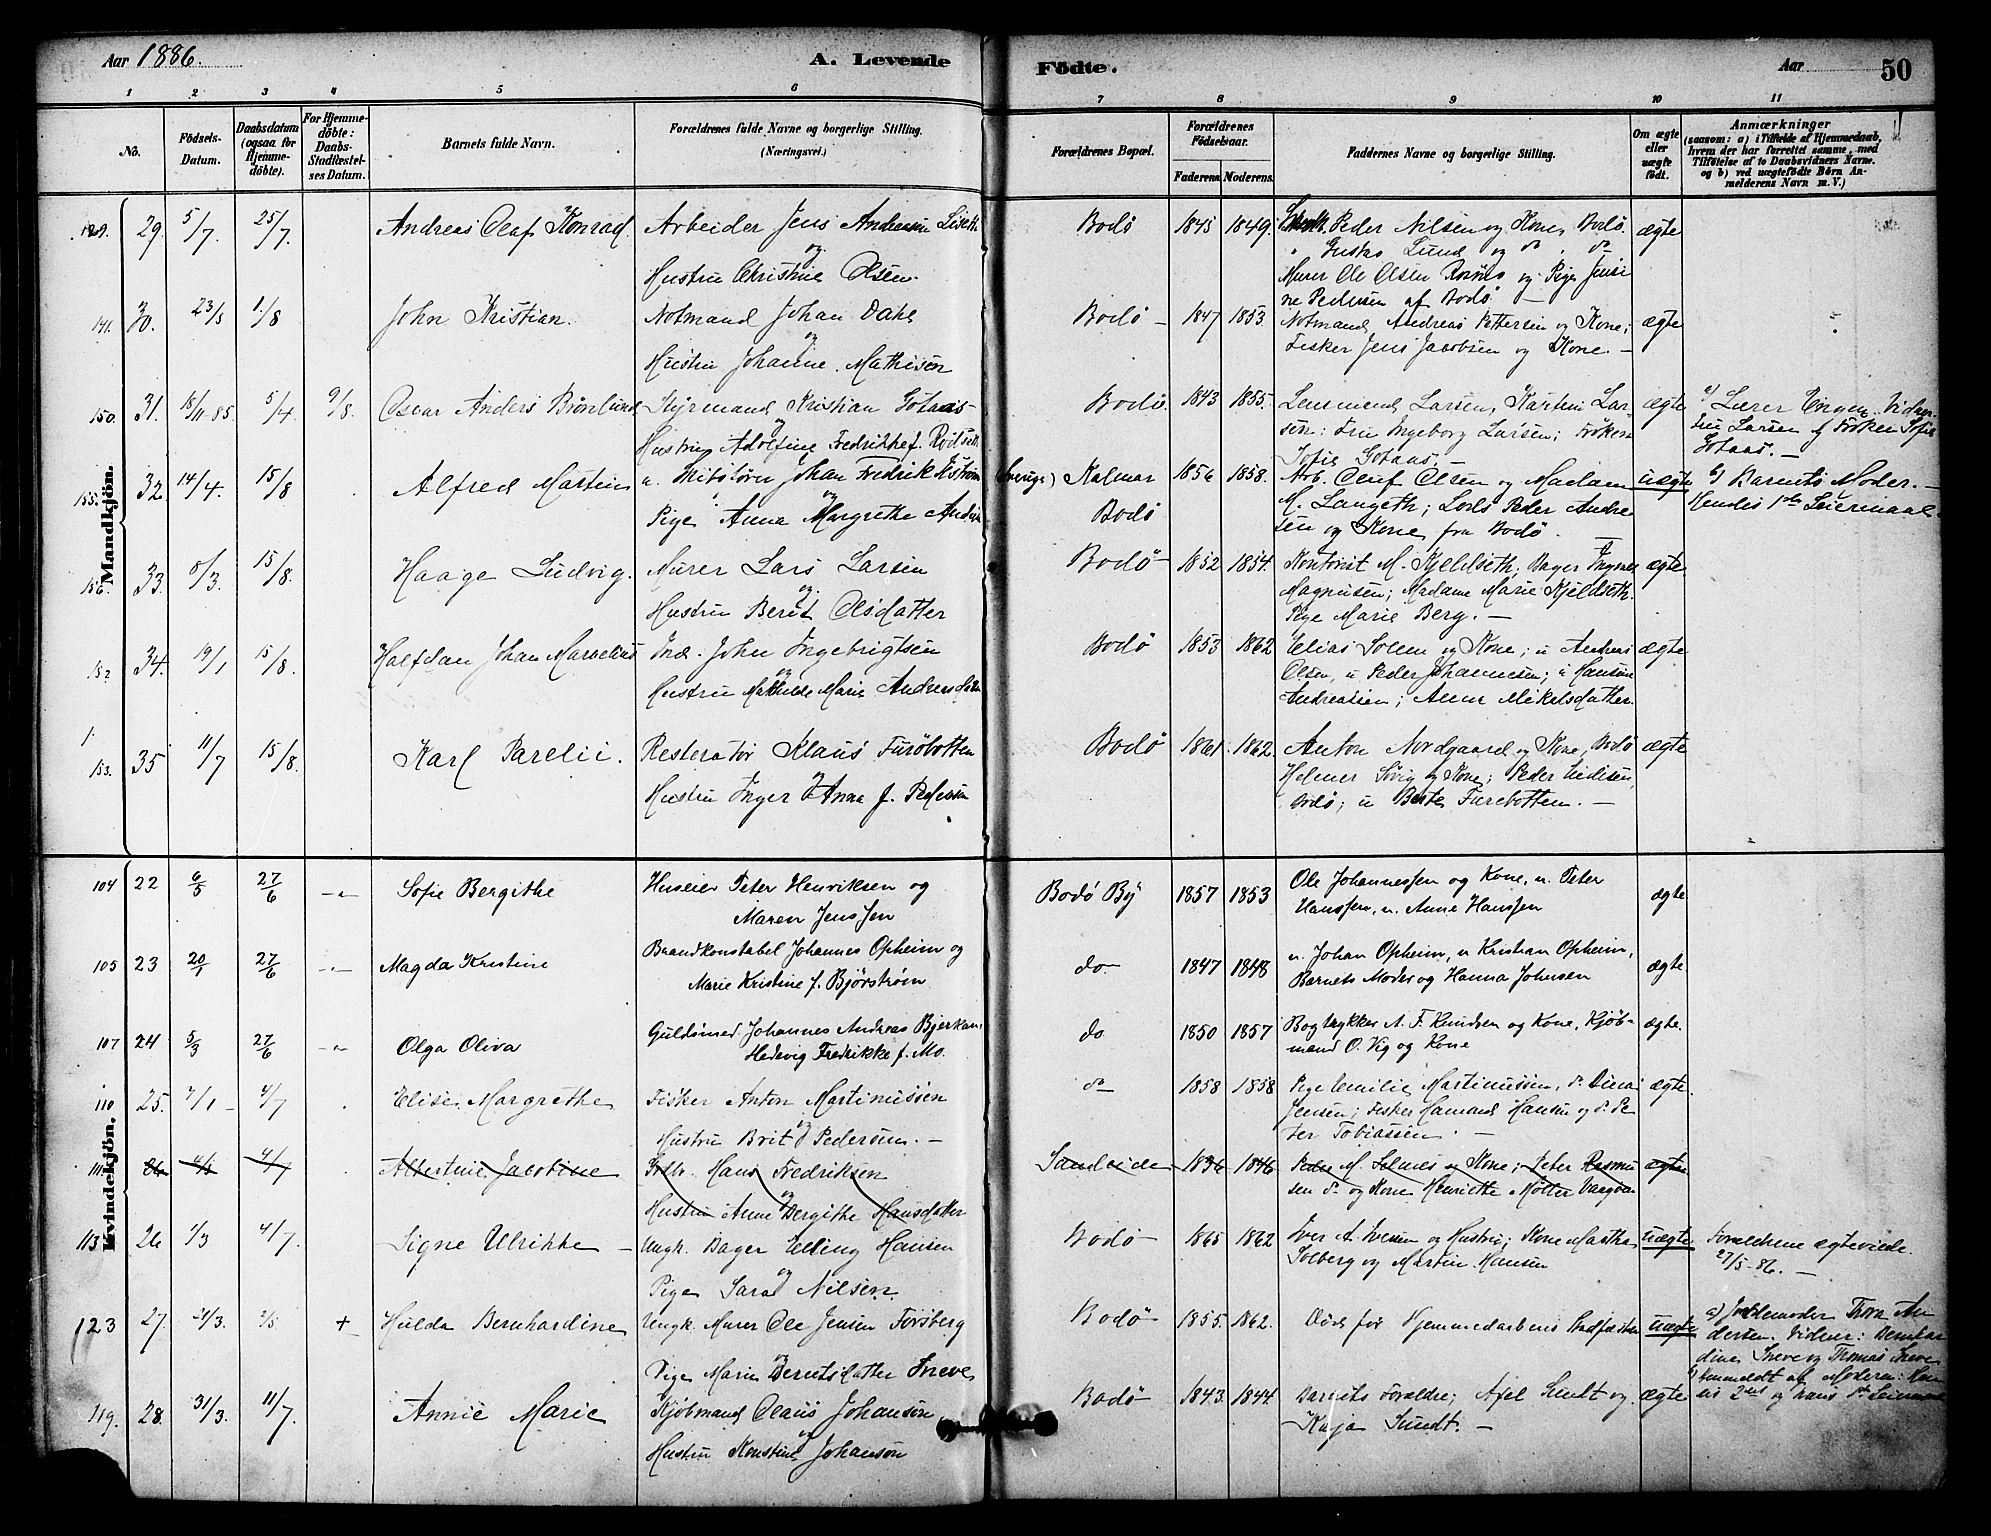 Aar 1886.
A. Levende
Födte.
Aar
50
1 2 3 4 5 6 7 8 9 10 11
No.
Födsels-Datum.
Daabsdatum (ogsaa for Hjemme-döbte).
For Hjemme-döbte: Daabs-Stadfæstel-ses Datum.
Barnets fulde Navn.
Forældrenes fulde Navne og borgerlige Stilling. (Næringsvei.)
Forældrenes Bopæl.
Forældrenes Födselsaar.
Faderens Moderens.
Faddernes Navne og borgerlige Stilling.
Om ægte eller uægte födt.
Anmærkninger
(saasom: a) i Tilfælde af Hjemmedaab, hvem der har forrettet samme, med Tilföielse af to Daabsvidners Navne. og b) ved uægtefödte Börn Anmelderens Navn m. V.)
Mandkjön.
29. 5/7. 25/7. Andreas Olaf Konrad Arbeider Jens Andreas Bodö 1845 1849. Peder Nilsen og Kone, Bodö. ægte
og Lund og do. do
Hustru Christine Olsen. Murer Ole Olsen og Pige Jensi
ne Pedersen af Bodö
141. 30. 23/5 1/8 John Kristian. Notmand Johan Dahl Bodö 1847 1853 Notmand Andreas Pettersen og Kone; ægte
og Fisker Jens Jacobsen og Kone.
Hustru Johanne Mathisen
150. 31. 18/11-85 5/4 9/8. Oscar Anders Brönlund Styrmand Kristian Sotaas Bodö. 1843 1855. Lensmand Larsen, Kartin Lar- ægte a) Lærer Engen. Vidner
og sen; Fru Ingeborg Larsen; Fröken Fru Larsen og Fröken Sofie
Hustru Adolfine Fredrikke f. Sofie Sotaas. Sotaas.
155. 32 14/4. 15/8 Alfred Martin u. Johan Fredrik (Sverige) Kalmar 1856 1858. Arb. Oluf Olsen og Madam uægte b) Barnets Moder.
og M. Langseth; Lods Peder Andre Hendes 1ste Leiermaal.
Pige Anna Margrethe Bodö sen og Kone fra Bodö.
156. 33. 8/3. 15/8. Haage Ludvig. Murer Lars Larsen Bodö 1852 1854. Kontorist M. Kjeldseth, Bager ægte.
og Magnusen; Madame Marie Kjeldseth.
Hustru Berit Olsdatter Pige Marie Berg.
152 34. 19/1 15/8. Halfdan Johan Marselius Ind. John Ingebrigtsen Bodö 1853 1862 Elias Solem og Kone; u Andreas ægte
og Olsen, u Peder Johannesen; u Hansine
Hustru Mathilde Marie Andreasdatter Andreassen; Anna Mikelsdatter.
153. 35 11/7 15/8. Karl Parelii. Restoratör Klaus Furöbotten Bodö 1861 1862 Anton Nordgaard og Kone, Bodö ægte
Helmer Sövig og Kone; Peder
Hustru Inger Anna f. Pedersen Bodö; u Berte Furebotten.
Kvindekjön.
104 22 6/5 27/6 -"- Sofie Bergithe Huseier Peter Henriksen og Bodö By 1857 1853 Ole Johannessen og Kone, u. Peter ægte
Maren Jenssen Hanssen, u. Anne Hanssen
105 23 20/1 27/6 -"- Magda Kristine Brandkonstabel Johannes Opheim og do 1847 1848 u. Johan Opheim, u Kristian Opheim, ægte
Marie Kristine f. Björström Barnets Moder og Hanna Johnsen
107 24 5/3 27/6 -"- Olga Oliva Guldsmed Johannes Andreas Bjerkan do 1850 1857 Bogtrykker A. F. Knudsen og Kone, Kjöb- ægte.
Hedevig Fredrikke f. Mo. mand O. Vig og Kone
110 25. 7/1 4/7 Elise Margrethe Fisker Anton Martinussen do 1858 1858 Pige Emilie Martinussen, do. Dina ægte.
og Jensen; Fisker Hansen og do. Pe
Hustru Brit Pedersen. ter Tobiassen
26 4/7 Albertine Jacobine Hans Fredriksen Sandeide 1836 1846 M. Selnes og Kone; Peter Rasmu ægte
og sen do og Kone Henriette Möller
Hustru Anne Bergithe Hansdatter
113 26 1/3 4/7. Signe Ulrikke Ungk. Bager Elling Hansen Bodö 1865 1862 Iver A. Iversen og Hustru; Kone Martha uægte Forældrene ægteviede.
og Solberg og Martin Hansen 27/5-86.
Pige Sara Nilsen.
123 27. 21/3. 2/5 + Hulda Bernhardine Ungk. Murer Ole Jensen Forsberg Bodö 1855. 1862. Död för Hjemmedaabens Stadfæstelse uægte a) Jordemoder Thora An
og dersen. Vidner: Bernhar
Pige Marie Berntsdatter Sneve dine Sneve og Thomas Sneve
119. 28. 31/3. 11/7. Annie Marie Kjöbmand Olaus Johansen Bodö 1843. 1844. Barnets Forældre; Axel Sundt og ægte b) Anmeldt af Moderen: Hen
og Kaja Sundt. des 2det og hans 1ste Leiermaal
Hustru Konstine Johansen